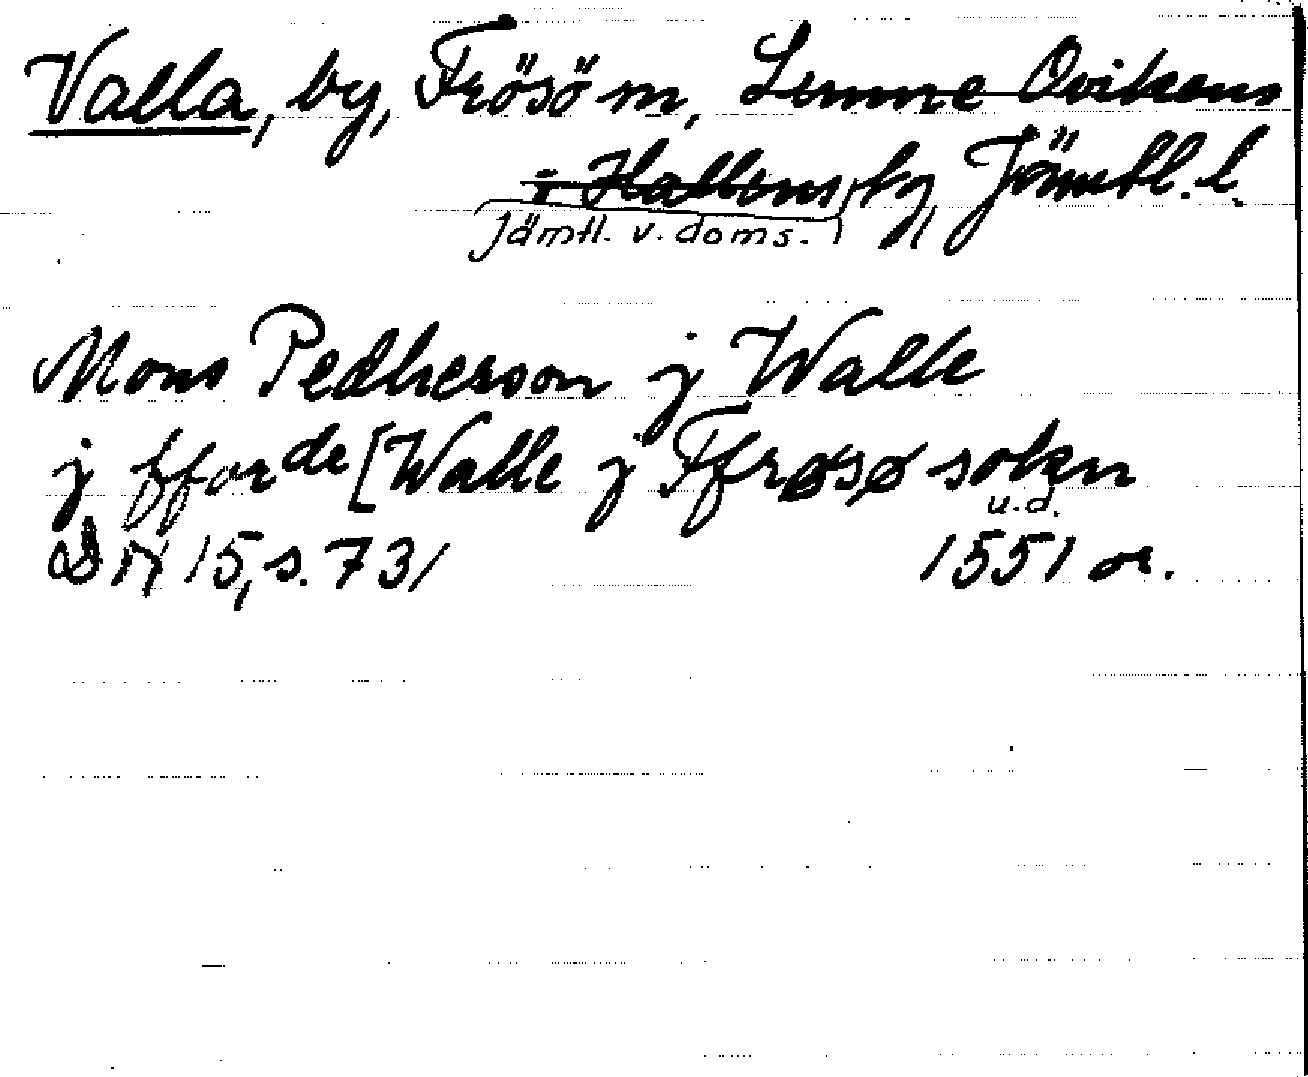 Valla, by, Frösö sn, Sunne Ovikens
o Hallens tg, Jämtl. l.
Jämtl. v. doms.
Mons Pedherson j Walle
j fforde [Walle j Ffrøsø sokn
u.d.
DN 15, s. 73/ 1551 or.